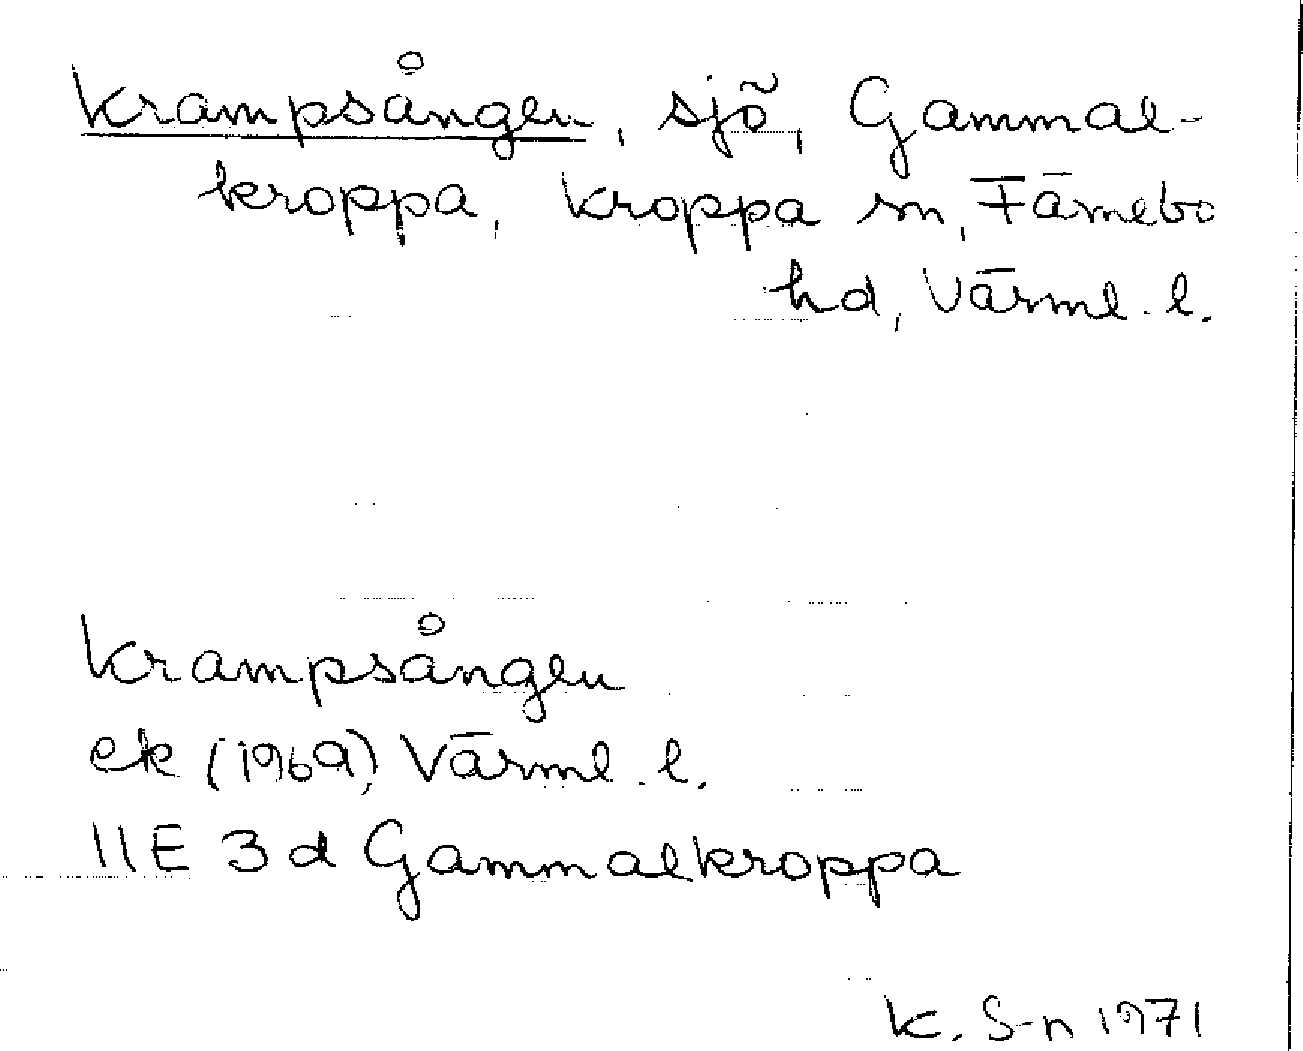 Krampsången, sjö, Gammal-
kroppa, Kroppa sn, Färnebo
hd, Värml. l.
Krampsången
ek (1969), Värml. l.
11E 3d Gammalkroppa
K. S-n 1971